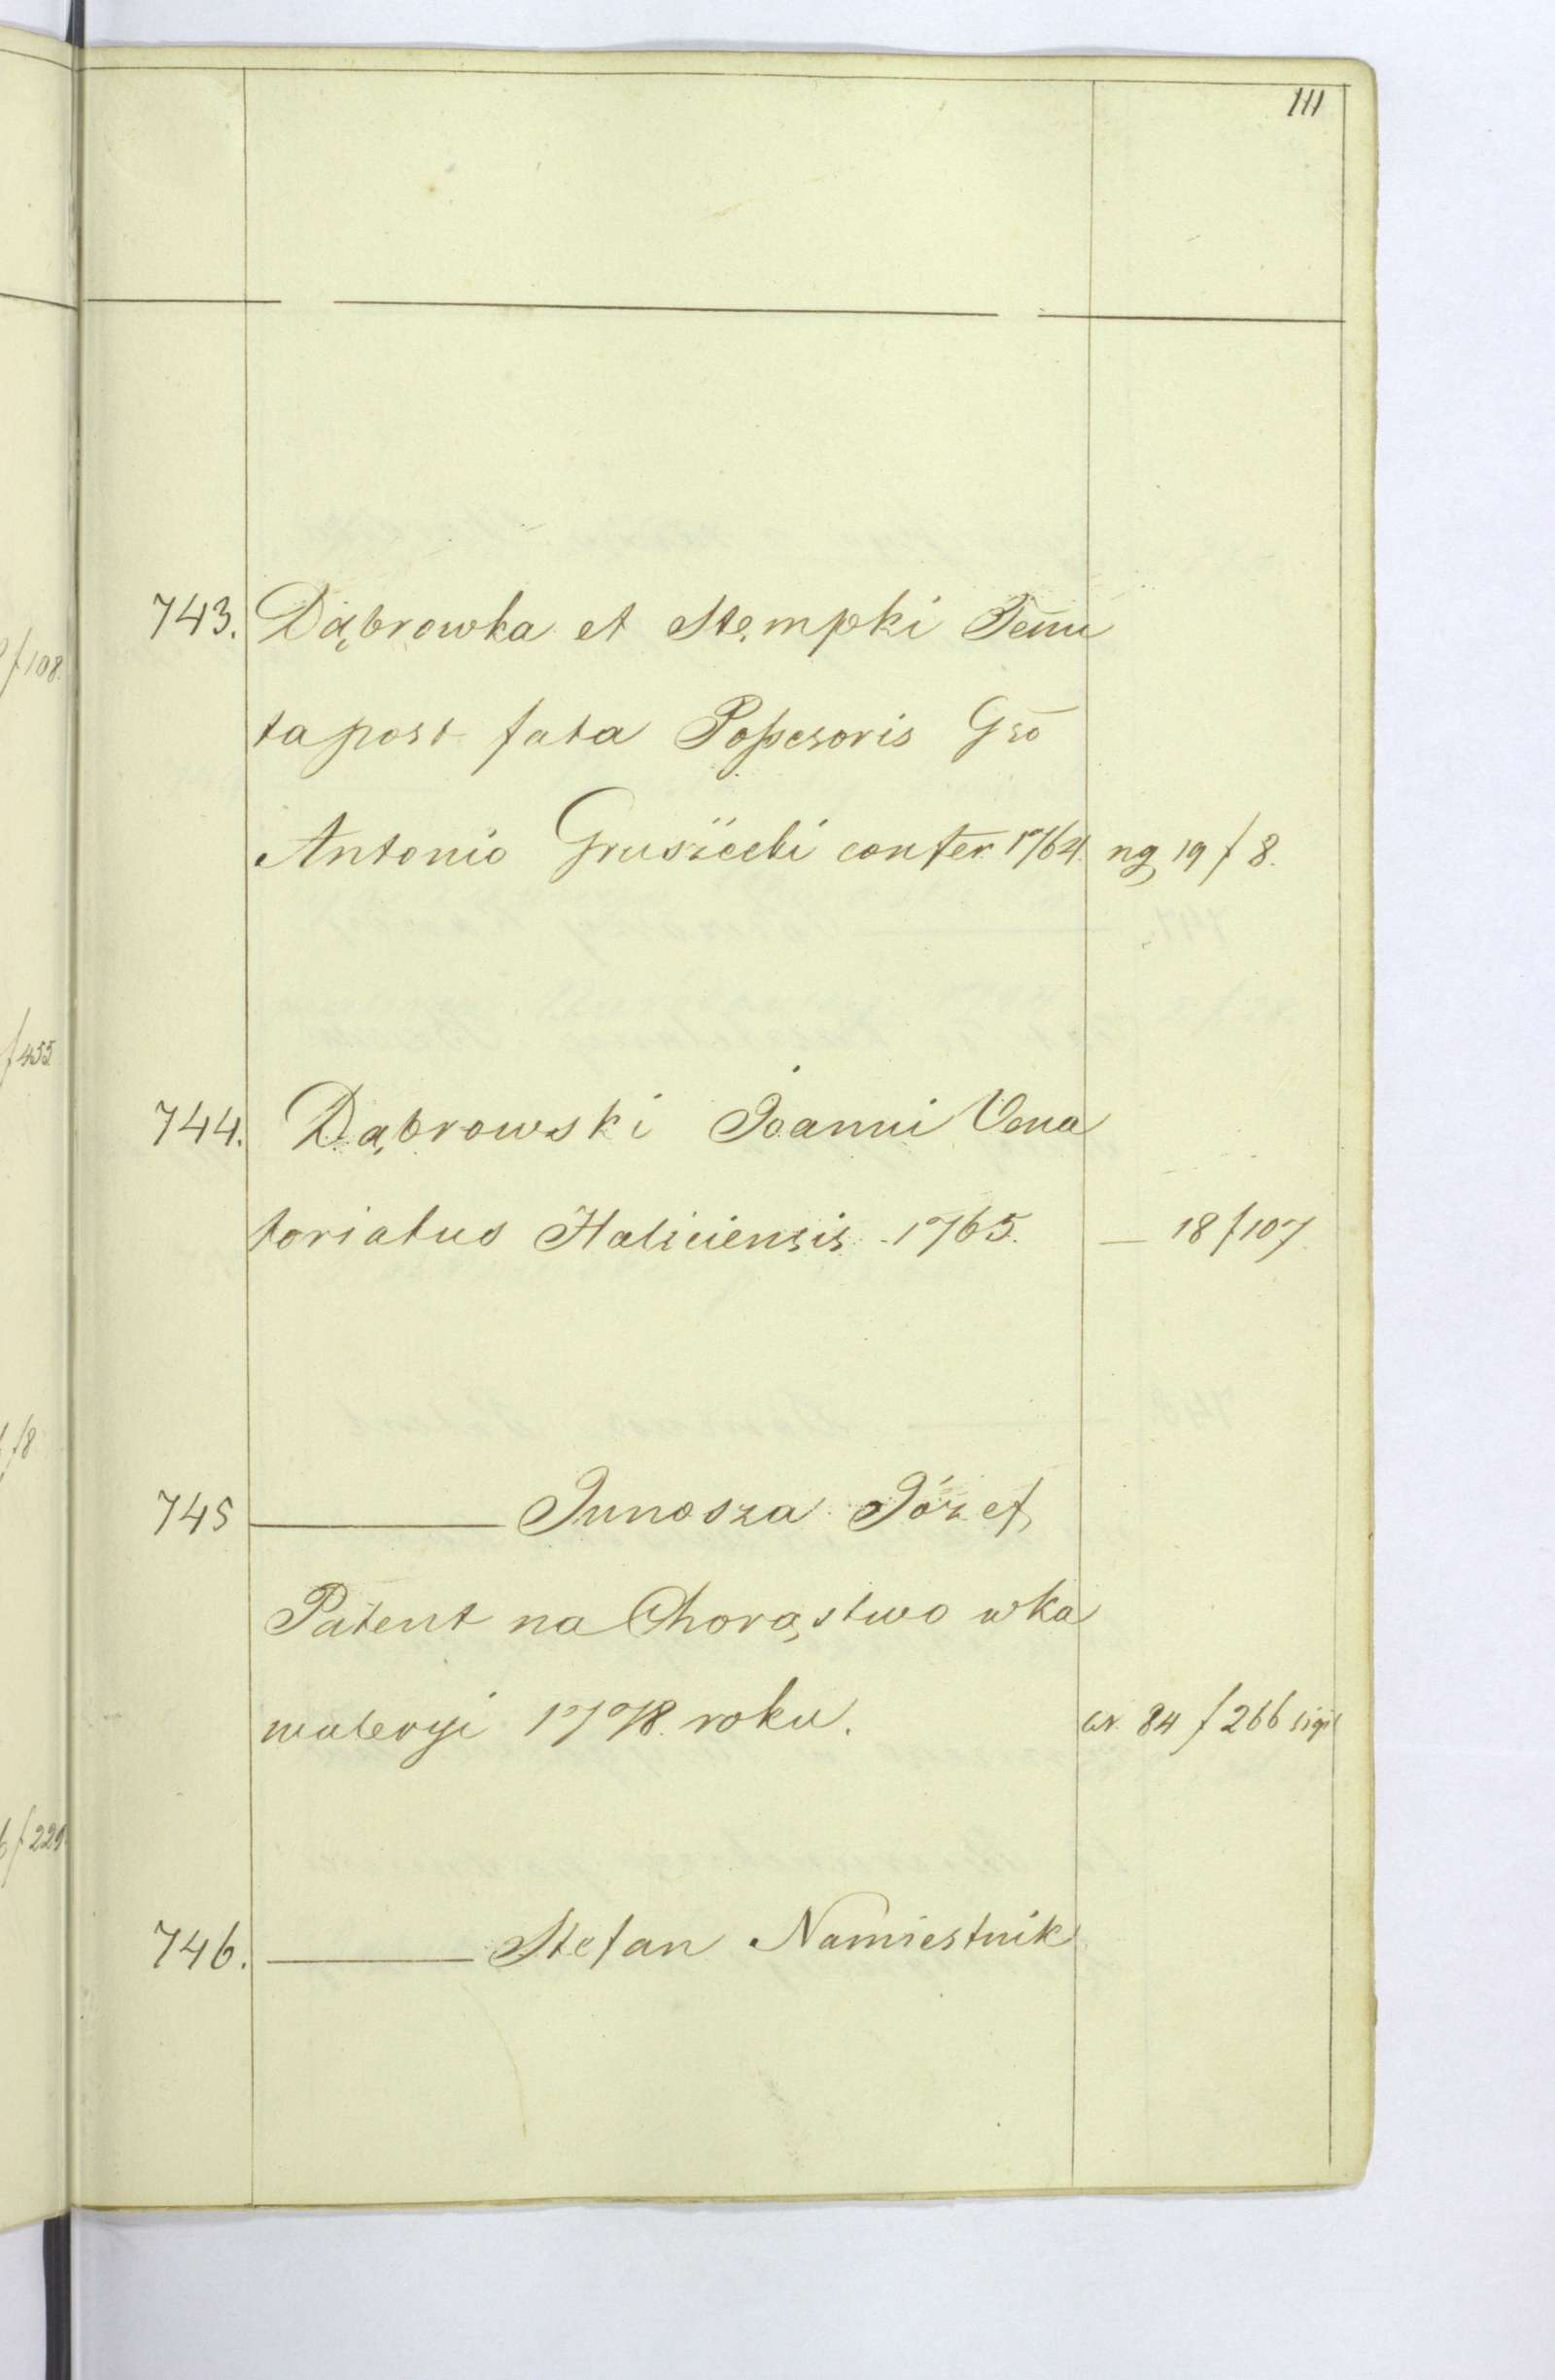 111
743. Dąbrowka et Stempki Tenu
ta post fata Possesoris Gso
Antonio Gruszecki confer. 1764. ng 19 f 8.
744. Dąbrowski Joanni Vena
toriatus Haliciensis 1765. — 18 f 107.
745 ——— Junosza Józef
Patent na Chorąstwo w ka
waleryi 1778. roku. 84 f 266 sigil
746. ——— Stefan Namiestnik
f 108.
f 455
f 8
f 229